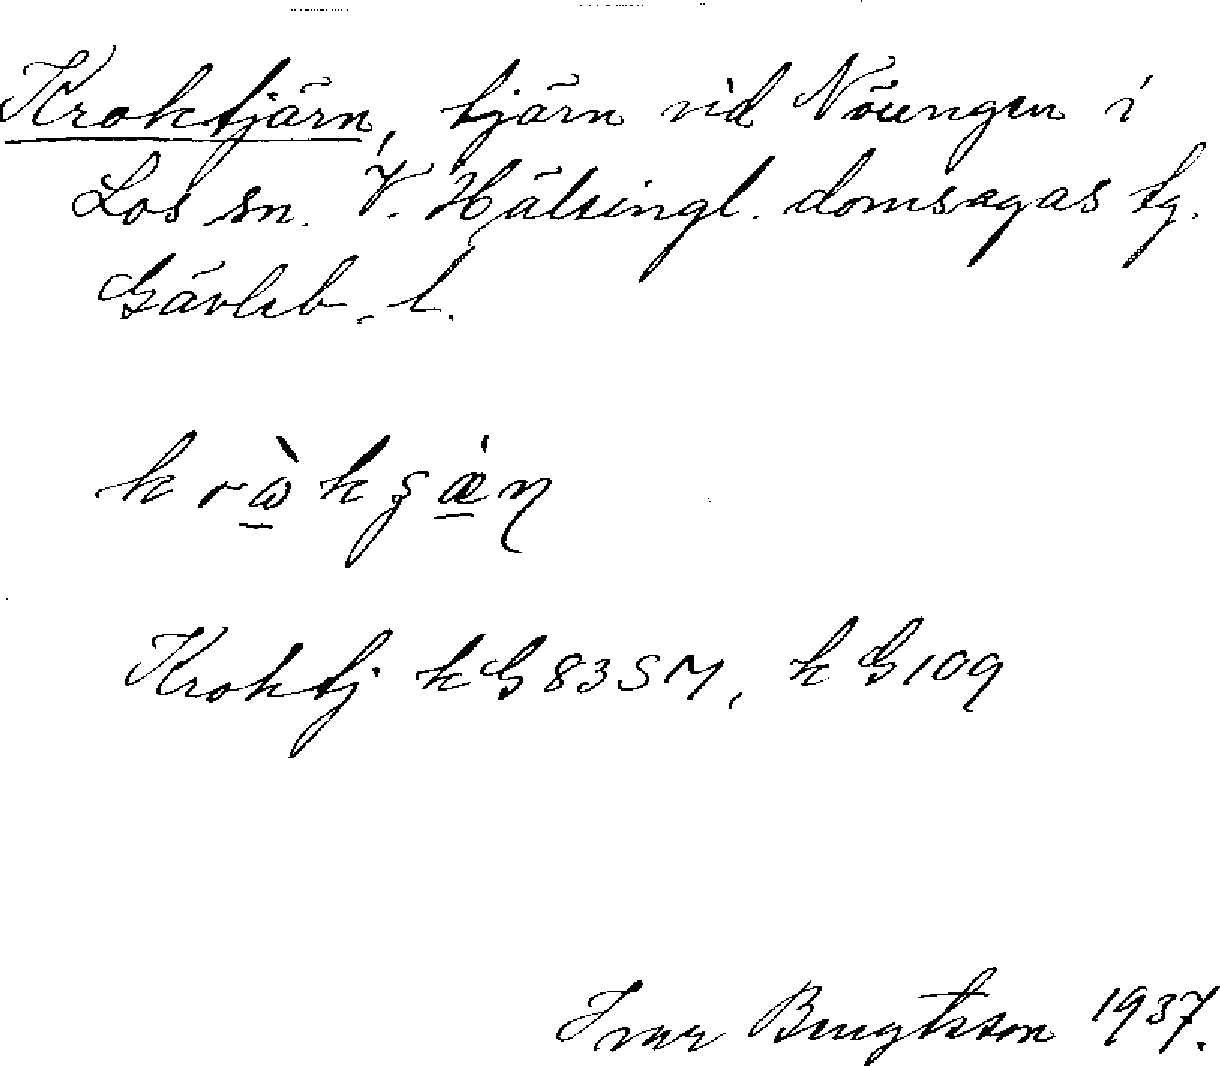 Kroktjärn, tjärn vid Nöungen i
Los sn. V. Hälsingl. domsagas tg.
Gävleb. l.
kròkʒǽɳ
Kroktj. kG83SM, kG109
Ivar Bengtsson 1937.